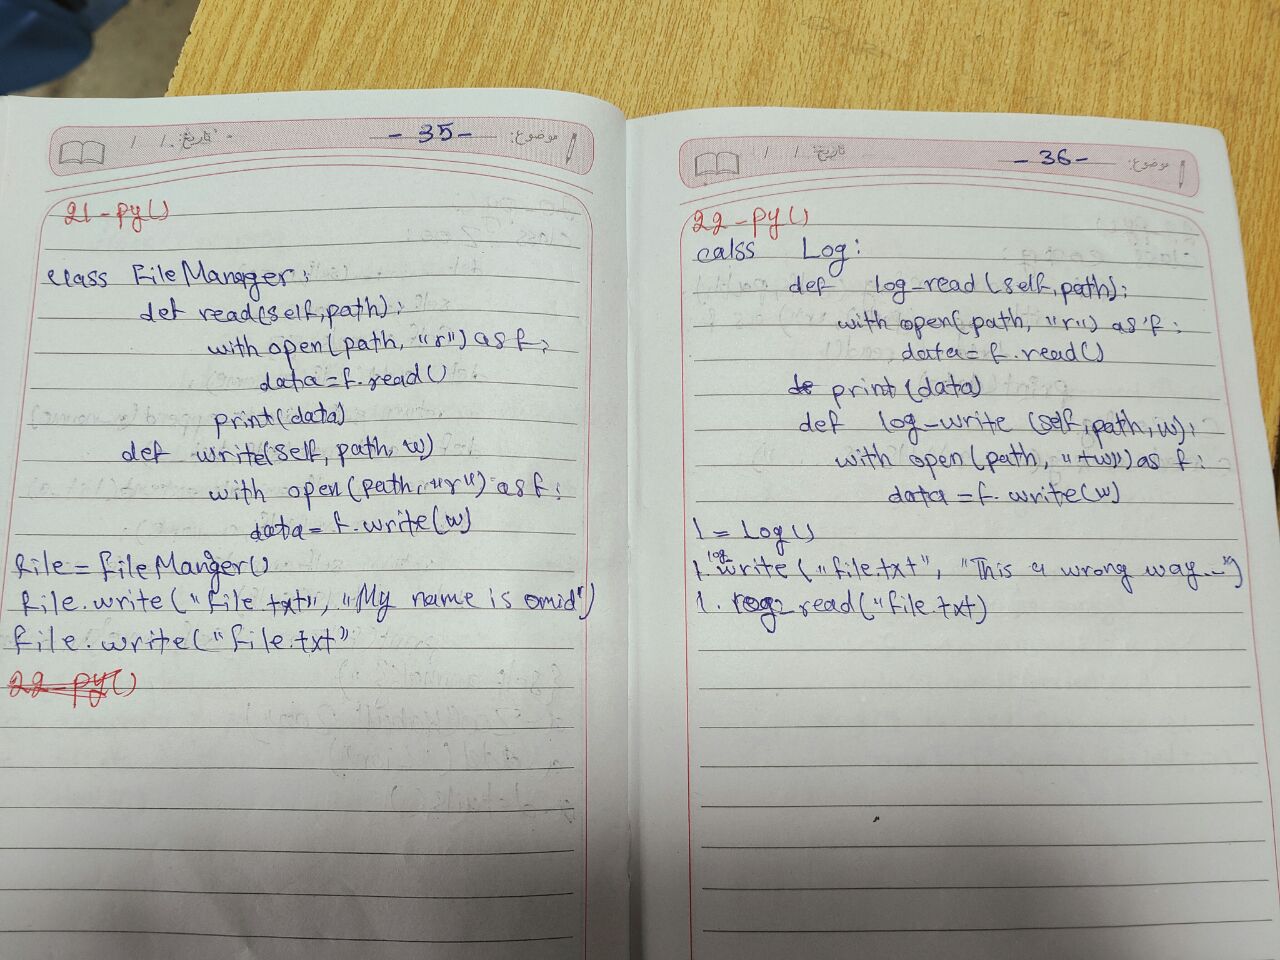 موضوع: - 35 - تاریخ: / /
21-py()
class FileManager:
def read(self,path):
with open(path, "r") as f:
data=f.read()
print(data)
def write(self, path, w)
with open(path, "r") as f:
data = f.write(w)
file = FileManger()
file.write("file.txt", "My name is omid")
file.write("file.txt"
22-py()
موضوع: - 36 - تاریخ: / /
22-py()
calss Log:
def log-read(self,path):
with open(path, "r") as f:
data=f.read()
print(data)
def log-write (self,path,w):
with open(path, "+w") as f:
data = f.write(w)
l = Log()
l.log-write("file.txt", "This a wrong way..")
l.log-read("file.txt)